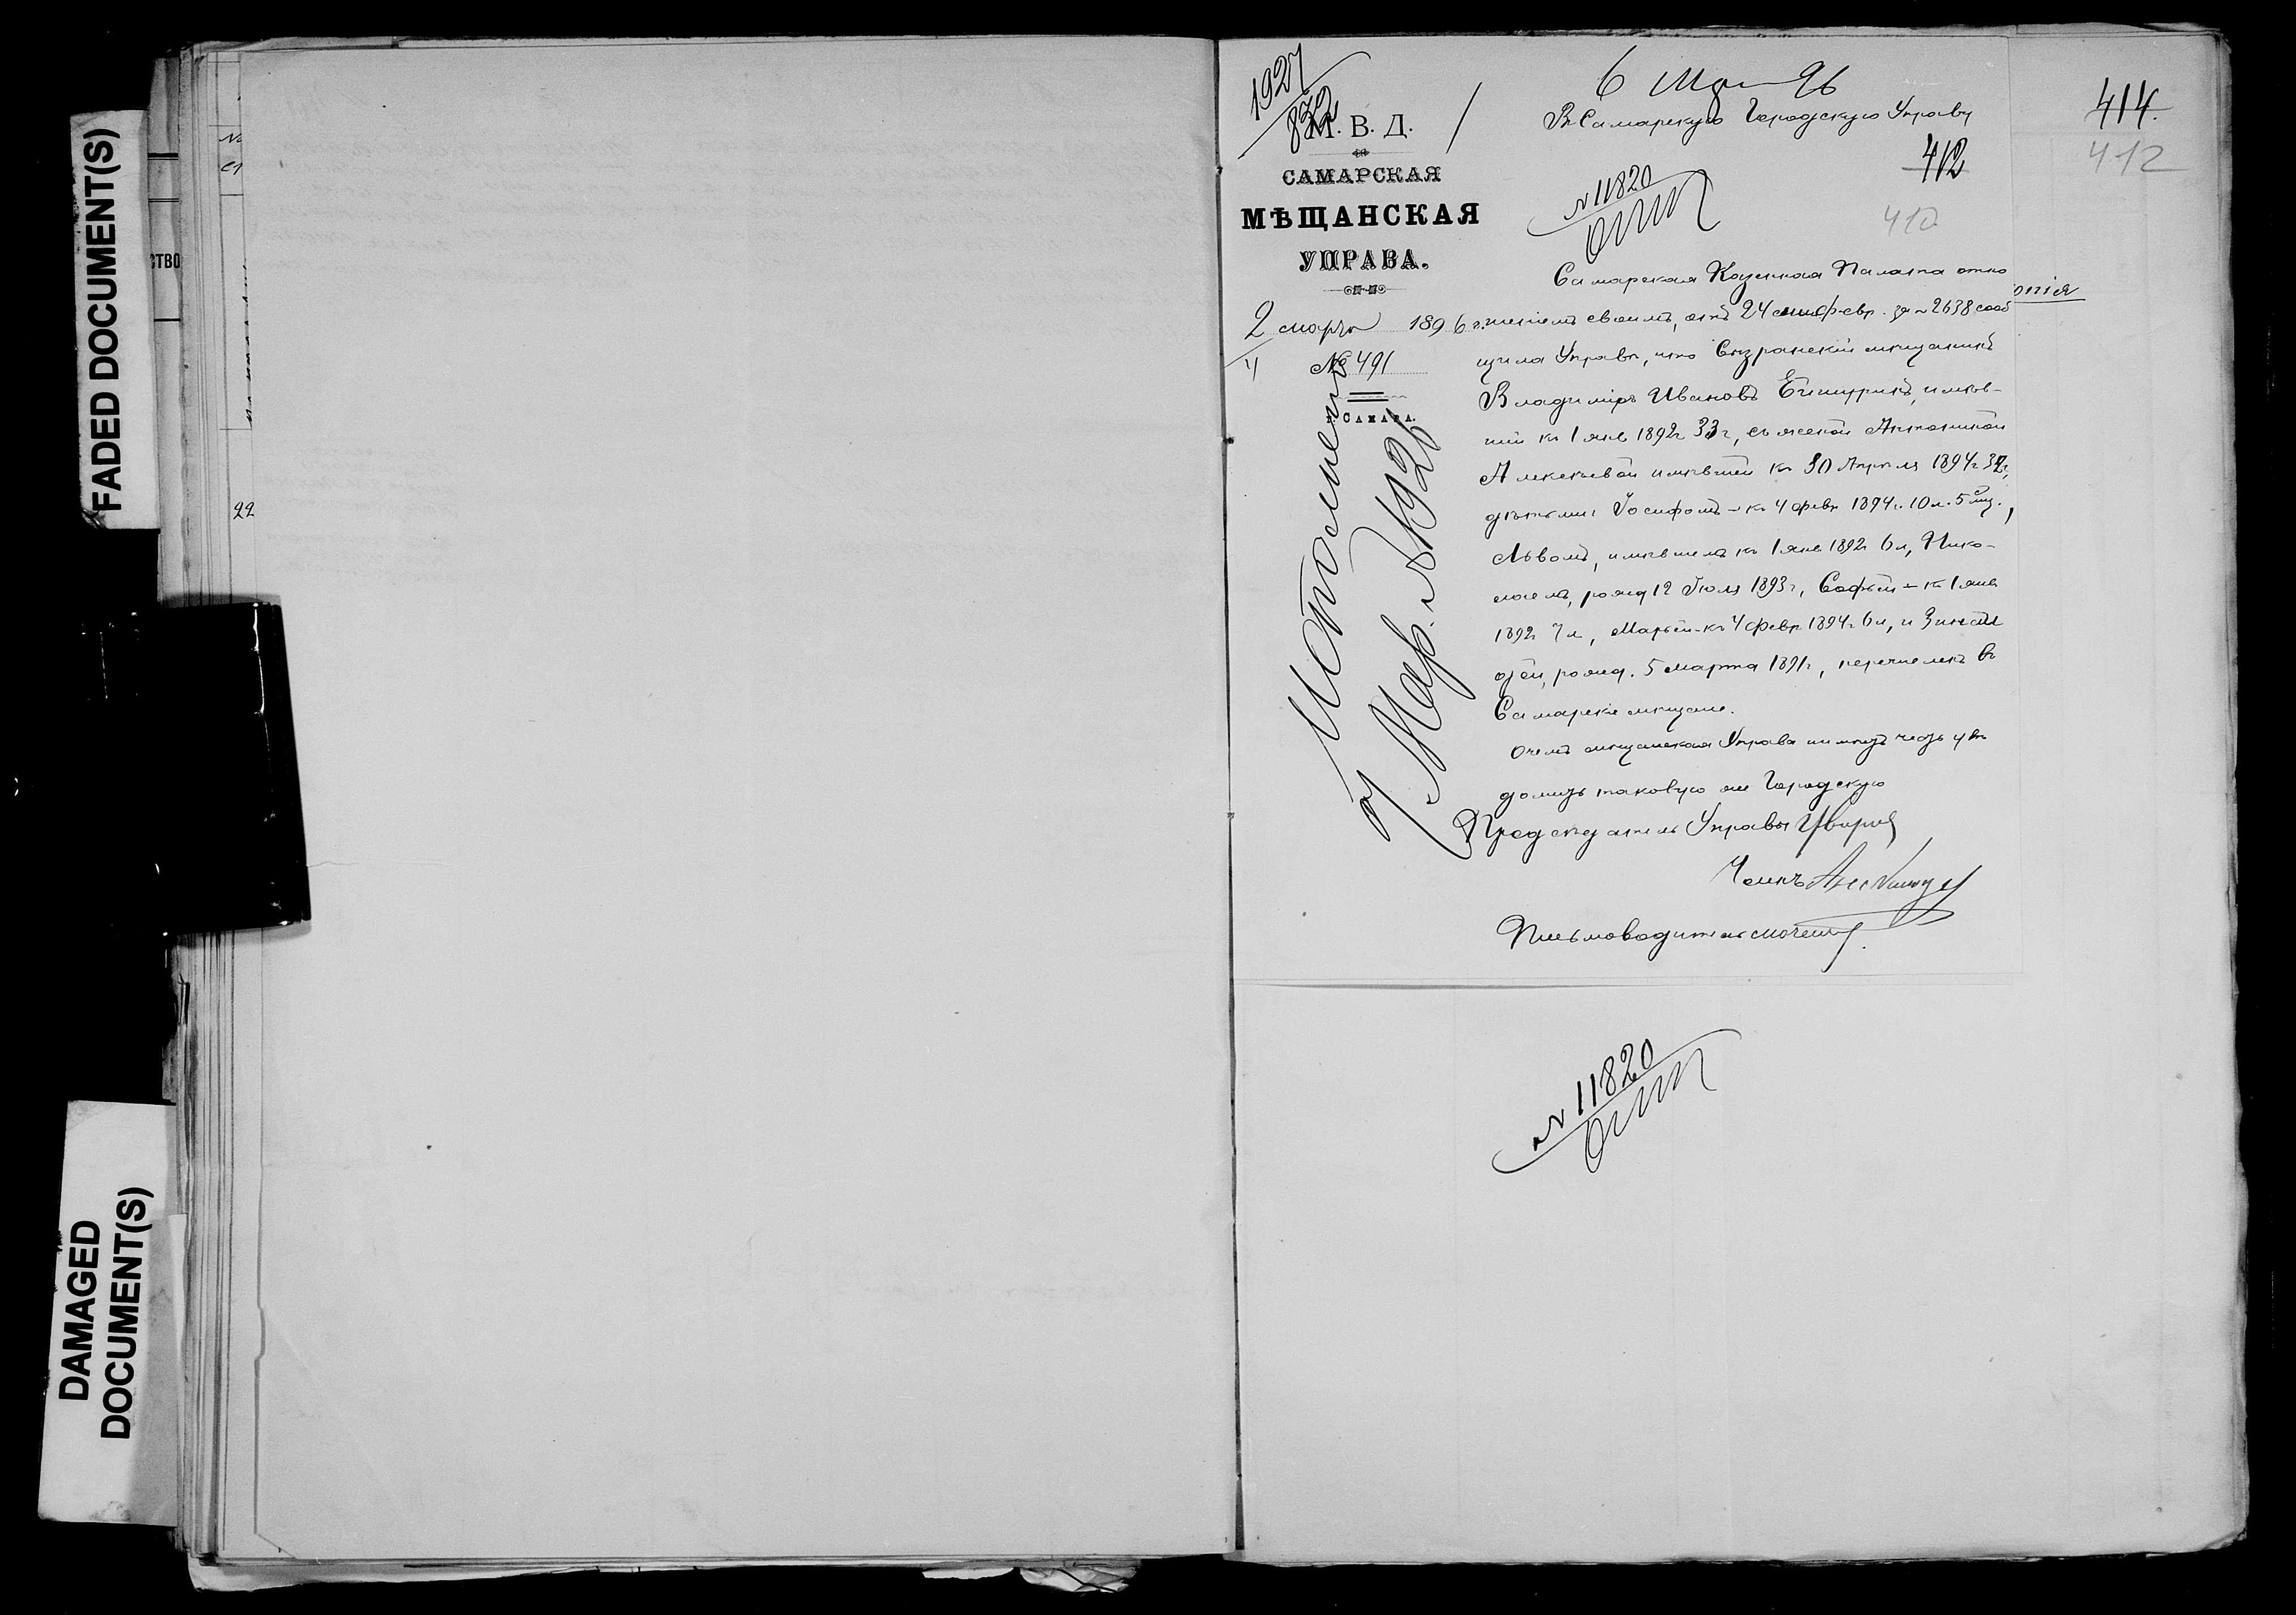 FADED DOCUMENT(S)
DAMAGED
DOCUMENT(S)
СТВО
22
1927
872
М. В. Д.
САМАРСКАЯ
МѢЩАНСКАЯ
УПРАВА.
2 марта 1896 г.
4
№ 491
г. САМАРА.
Исполнено
7 Мар. № 1926
6 Мар 96
Въ Самарскую Городскую Управу
414.
412
412
412
№ 11820
Самарская Казенная Палата отно
шеніемъ своимъ, отъ 24 февр. за № 2638 сооб
щила Управѣ, что Сызранскій мѣщанинъ
Владиміръ Ивановъ имѣв-
шій къ 1 янв 1892г 33г, съ женой Антониной
Алексѣевой имѣвшей къ 30 Апрѣля 1894г 32г,
дѣтьми: Іосифомъ - къ 4 февр 1894г. 10л. 5 мѣ.,
Львомъ, имѣвшемъ къ 1 янв 1892г 6л, Нико-
лаемъ, рожд 12 Іюля 1893г, Софьей - къ 1 янв
1892г 7л, Марьей - къ 4 февр 1894г 6л, и Зинаи
дой, рожд. 5 марта 1891г, перечисленъ въ
Самарскіе мѣщане.
О чемъ мѣщанская Управа имѣетъ честь увѣ
домить таковую же Городскую
Предсѣдатель Управы
Членъ
Письмоводитель
№ 11820